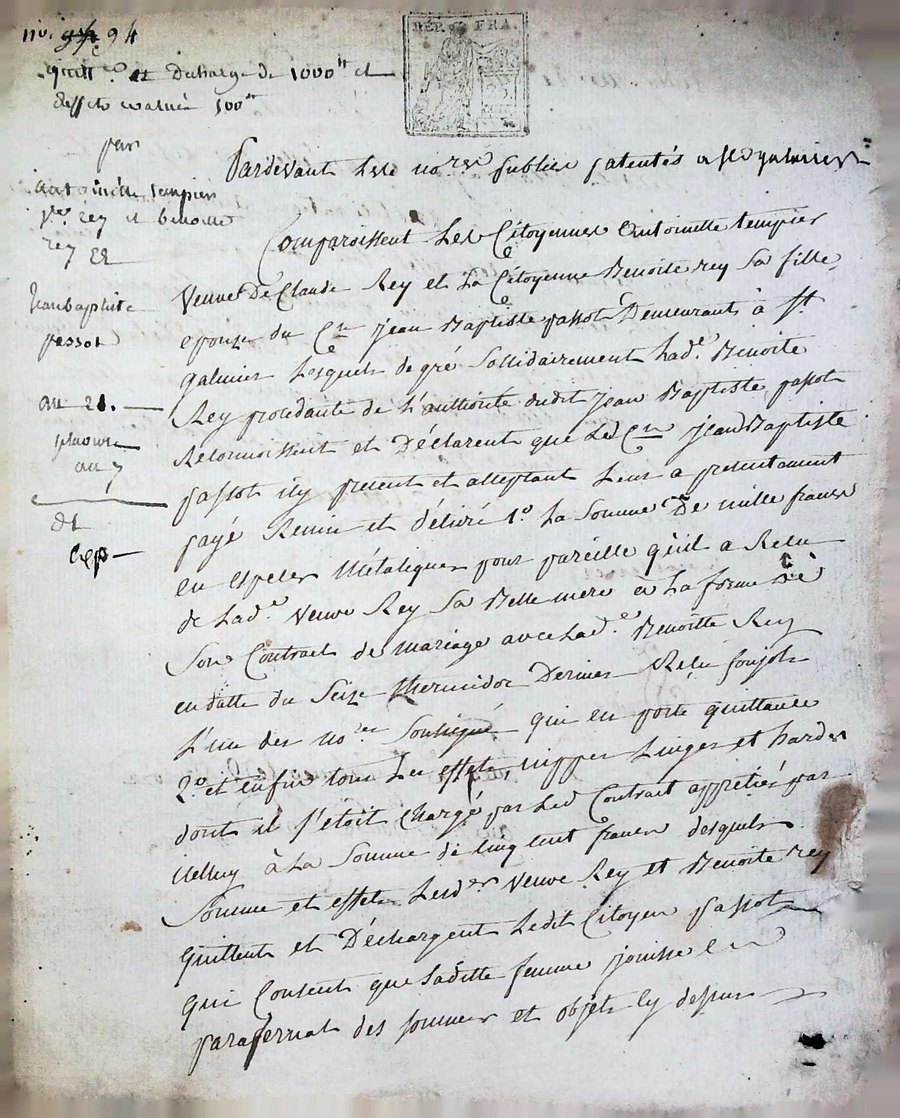 no. 94
quitt.ce et decharge de 1000lt et
Effets evalués 500lt
par
antoinette tempier
v.ve rey et benoitte
rey
Jean baptiste
passot
au 21.
pluviose
an 7
Dt
Exp
RÉP. FRA.
Pardevant Les no.res publics patentés a St galmier
Comparoissent Les Citoyennes Antoinette tempier
Veuve De Claude Rey et La Citoyenne Benoite rey Sa fille
epouze du C.en jean Baptiste passot Demeurants à St
Galmier Lesquels de gré Sollidairement Lad.e Benoite
Rey procedante de L'authorité dudit jean Baptiste passot
Reconnoissent et Déclarent que Led C.en jean Baptiste
passot icy present et acceptant Leur a presentement
payé Remis et délivré 1.o La Somme De mille francs
en especes Métaliques pour pareille qu'il a Reçu
de Lad.e Veuve Rey Sa Belle mere a La forme de
Son Contract de mariage avec Lad.e Benoitte Rey
en datte du Seize thermidor Dernier Reçu foujols
L'un des no.res Soussigné qui en porte quittance
2.o et enfin tous Les effets, nippes Linges et hardes
dont il S'étoit Chargé par Led Contract appretiés par
icelluy à La Somme de Cinq cent francs desquels
Somme et effets Lesd.es Veuve Rey et Benoite rey
Quittent et Déchargent Ledit Citoyen passot
qui Consent que Saditte femme jouisse en
parafernal des sommes et objets Cy dessus